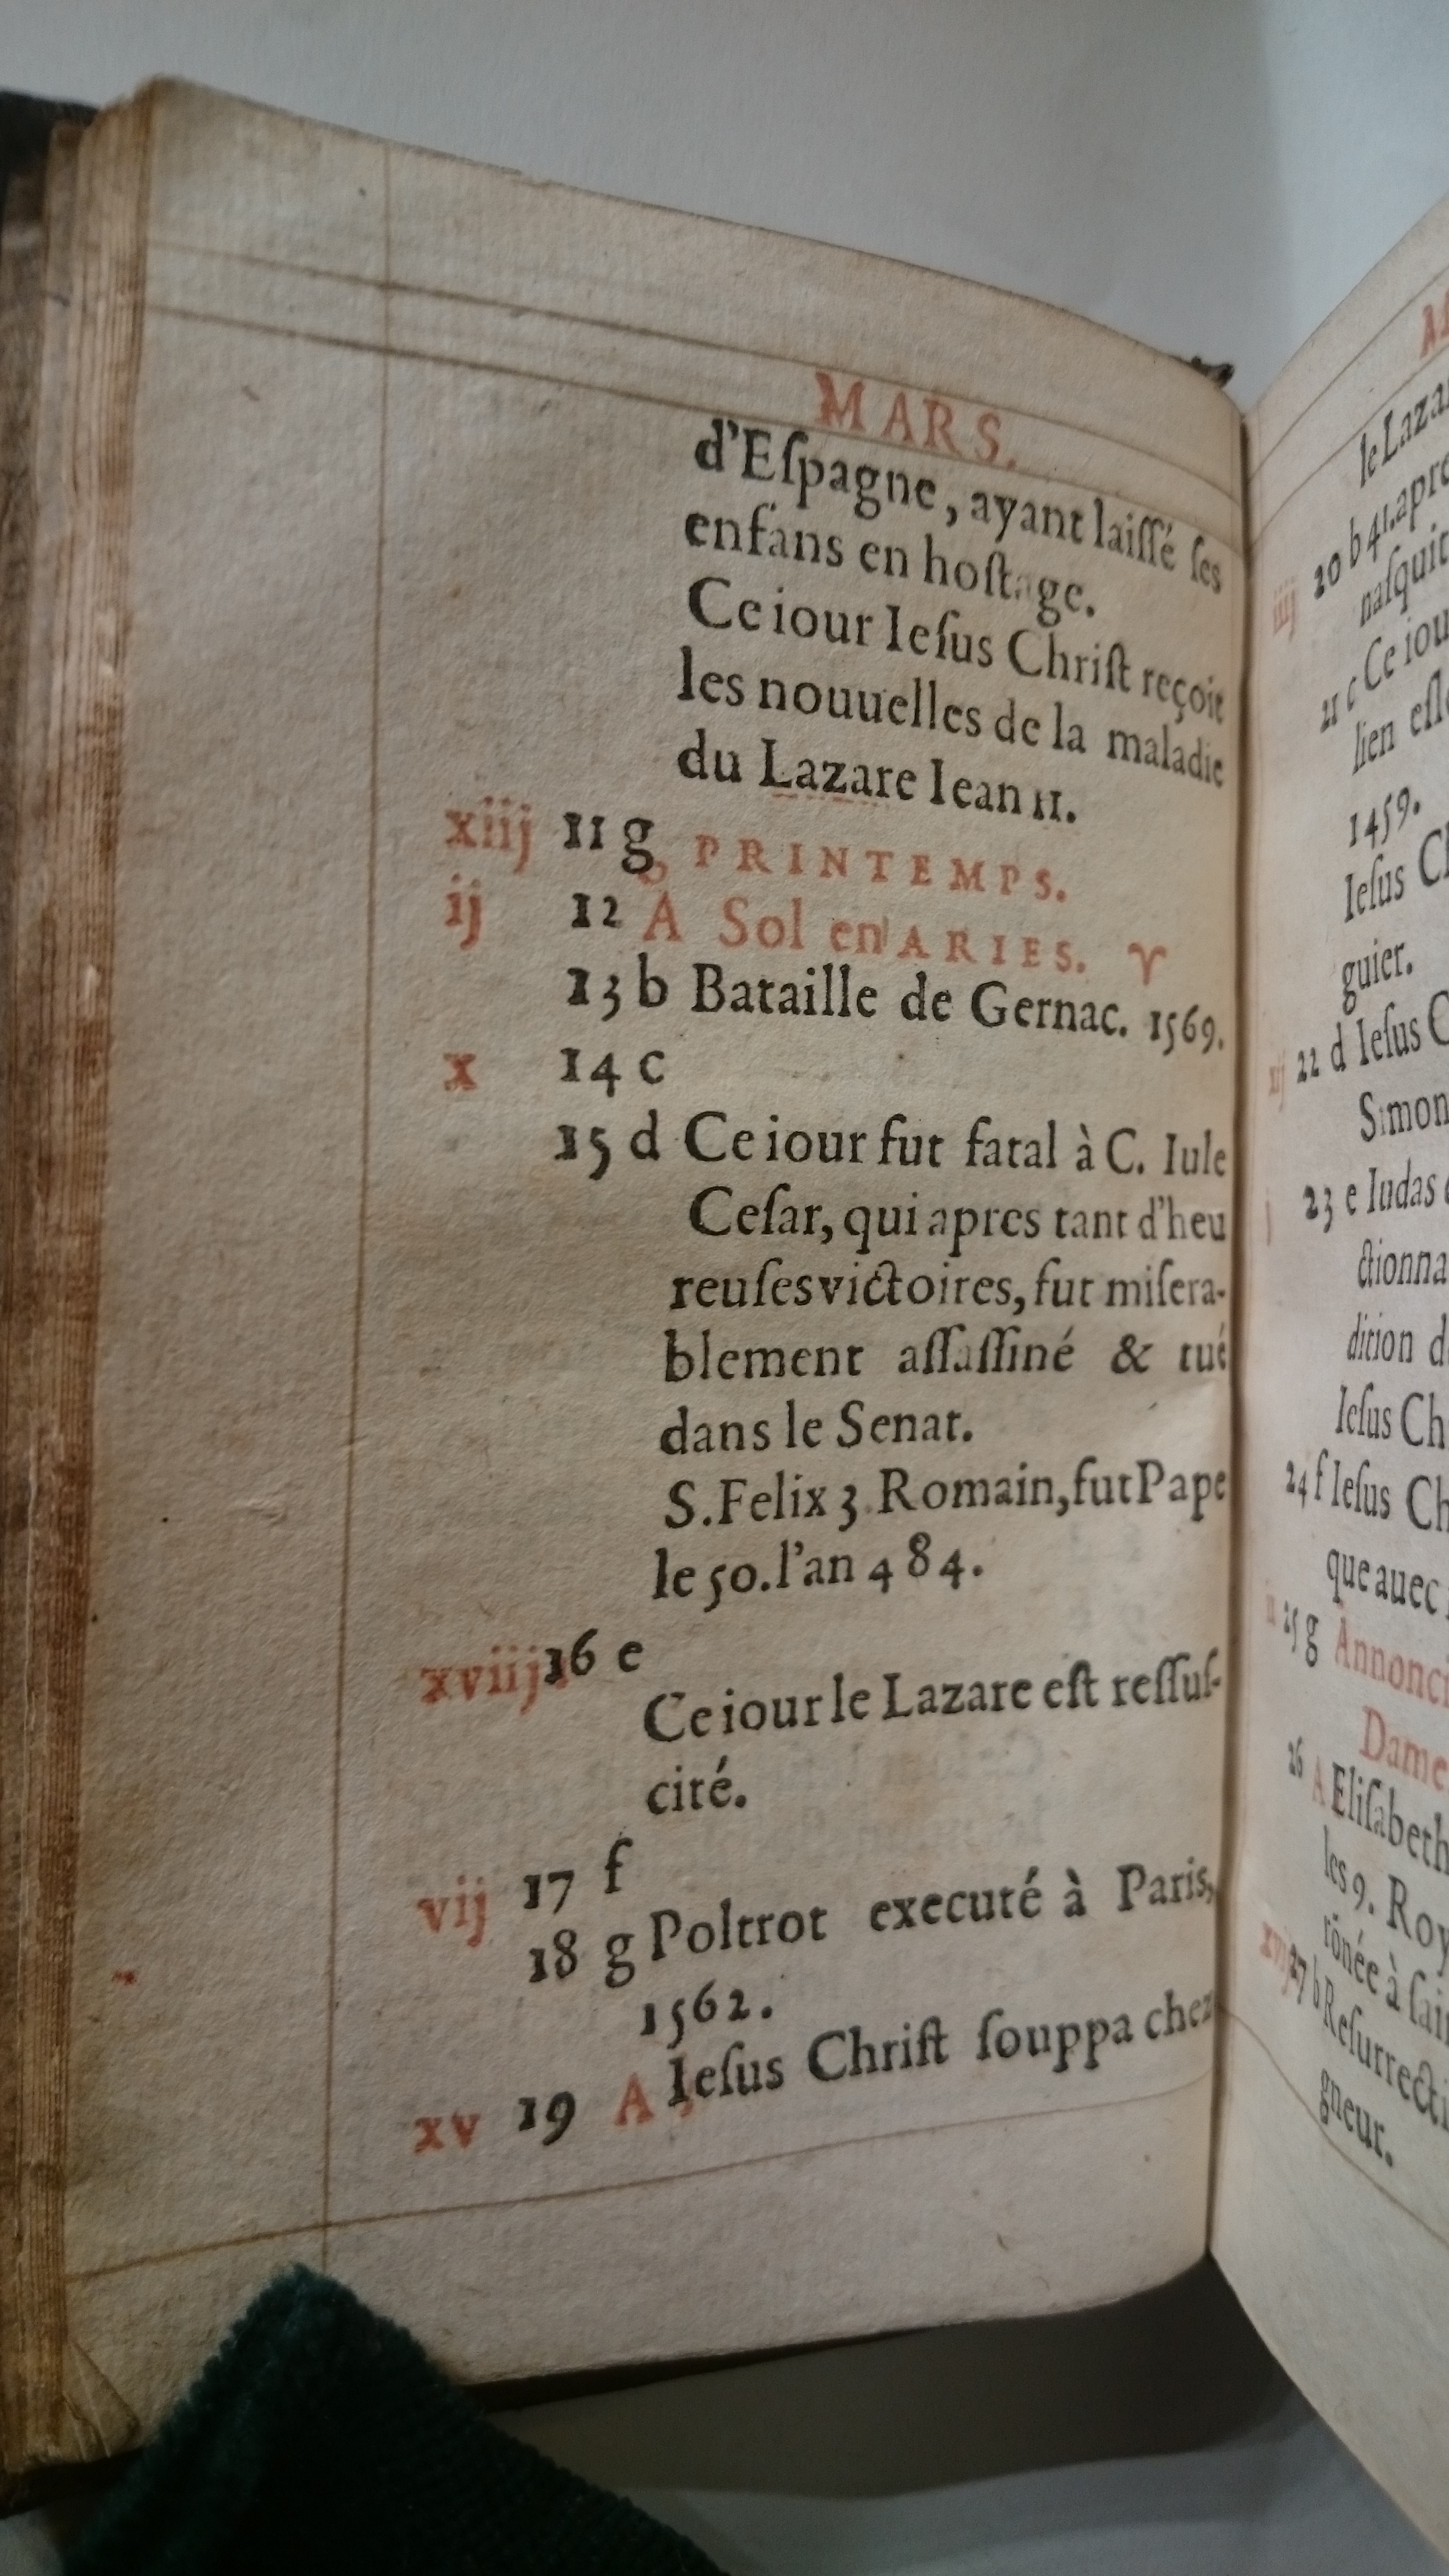 MARS.
d'Eſpagne, ayant laiſſé ſes
enfans en hoſtage.
Ce iour Ieſus Chriſt reçoit
les nouuelles de la maladie
du Lazare Iean 11.
xiij 11 g PRINTEMPS.
ij 12 A Sol en ARIES. ♈
13 b Bataille de Gernac. 1569.
x 14 c
15 d Ce iour fut fatal à C. Iule
Ceſar, qui apres tant d'heu
reuſes victoires, fut miſera-
blement aſſaſſiné & tué
dans le Senat.
S. Felix 3 Romain, fut Pape
le 50. l'an 484.
xviij 16 e
Ce iour le Lazare eſt reſſuſ-
cité.
vij 17 f
18 g Poltrot executé à Paris,
1562.
xv 19 A Ieſus Chriſt ſouppa chez
le
iiij 20 b 41. apre
naſquit
21 c Ce iou
lien
1459.
Ieſus
guier.
xij 22 d Ieſus
Simon
j 23 e Iudas
ctionna
dition
Ieſus Ch
24 f Ieſus Ch
que auec
25 g
Dame
26 A Eliſabeth
les 9. Roy
à
27 b
gneur.